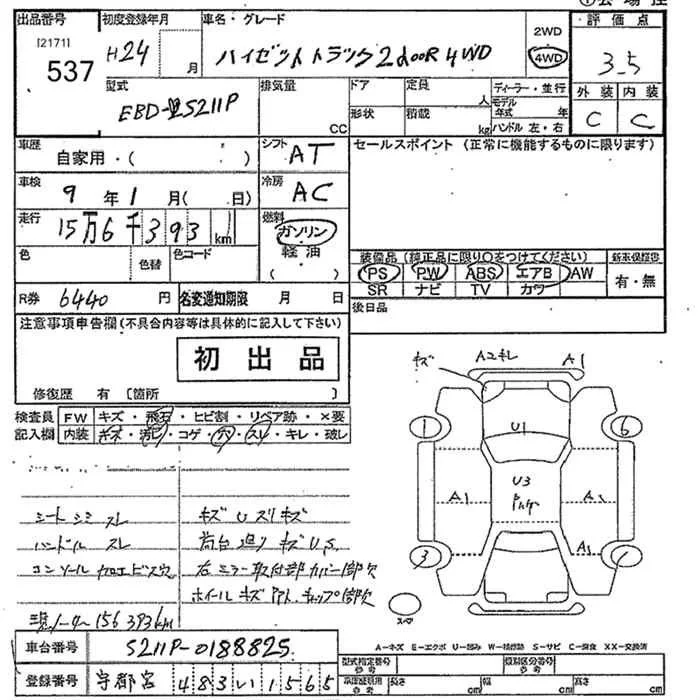 ①会場控
出品番号 初度登録年月 車名・グレード 2WD 評価点
[2171] 537 H24 月 ハイゼットトラック2dooR 4WD 4WD 3.5
外装 内装
C C
型式 排気量 ドア 定員 ディーラー・並行
EBD- S211P CC 人 モデル年式 年
形状 積載 kg ハンドル左・右
車歴 シフト セールスポイント (正常に機能するものに限ります)
自家用・( ) AT
車検 冷房
9年1月(日) AC
走行 燃料
15万6千393km ガソリン
色 色替 色コード 軽油
( )
装備品 (純正品に限り○をつけてください) 新車保証書
PS PW ABS エアB AW 有・無
SR ナビ TV カワ
R券 6440円 名変通知期限 月 日 後日品
注意事項申告欄(不具合内容等は具体的に記入して下さい)
初出品
修復歴 有 〔箇所
検査員 FW キズ・飛石・ヒビ割・リペア跡・×要
記入欄 内装 キズ・汚レ・コゲ・穴・スレ・キレ・破レ
キズ A2キレ A1
1 U1 6
A1 U3 A1
3 A1
シートシミ スレ キズUスリキズ
ハンドル スレ 荷台廻り キズU,S
コンソール加工ビス穴 右ミラー取付部カバー1部欠
ホイールキズ キャップ1部欠
現メーター156393km
スペア
車台番号 S211P-0188825
登録番号 宇都宮 483い1565
A－キズ E－エクボ U－凹み W－補修跡 S－サビ C－腐食 XX－交換済
型式指定番号 類別区分番号
長さ cm 幅 cm 高さ cm